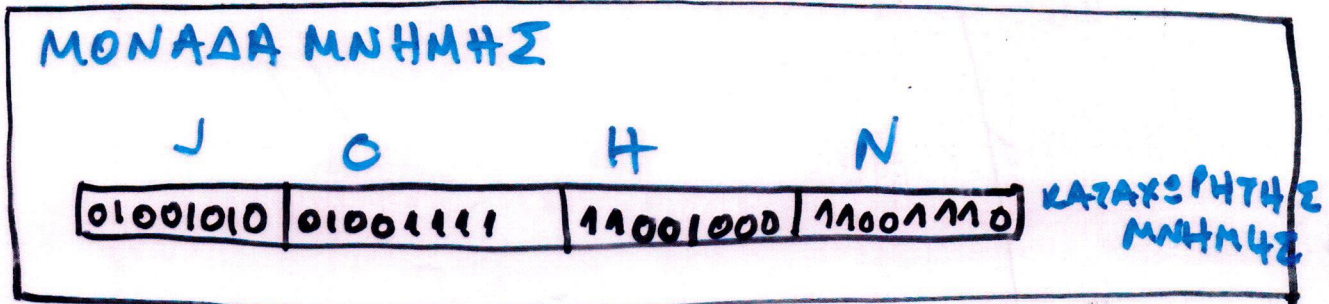 ΜΟΝΑΔΑ ΜΝΗΜΗΣ
J O H N
01001010 01001111 11001000 11001110
ΚΑΤΑΧΩΡΗΤΗΣ
ΜΝΗΜΗΣ